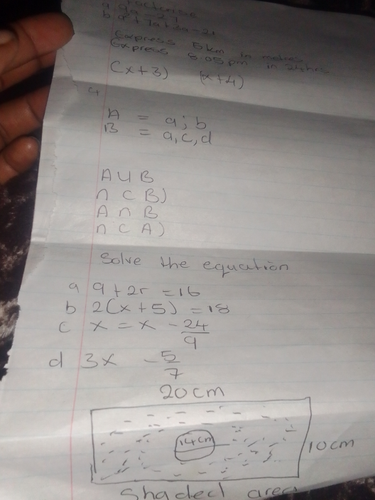 Express 5km in metres
Express
(x+3) (x+4)
A = a; b
B = a, c, d
A U B
n C B)
A n B
n C A)
Solve the equation
a 9+2r = 16
b 2(x+5) = 18
c x = x - 24/9
d 3x - 5/7
20cm
14cm
10cm
Shaded area